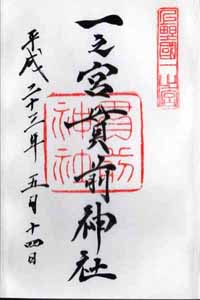 上野國一之宮
一之宮貫前神社
貫前
神社
平成二十三年五月十四日